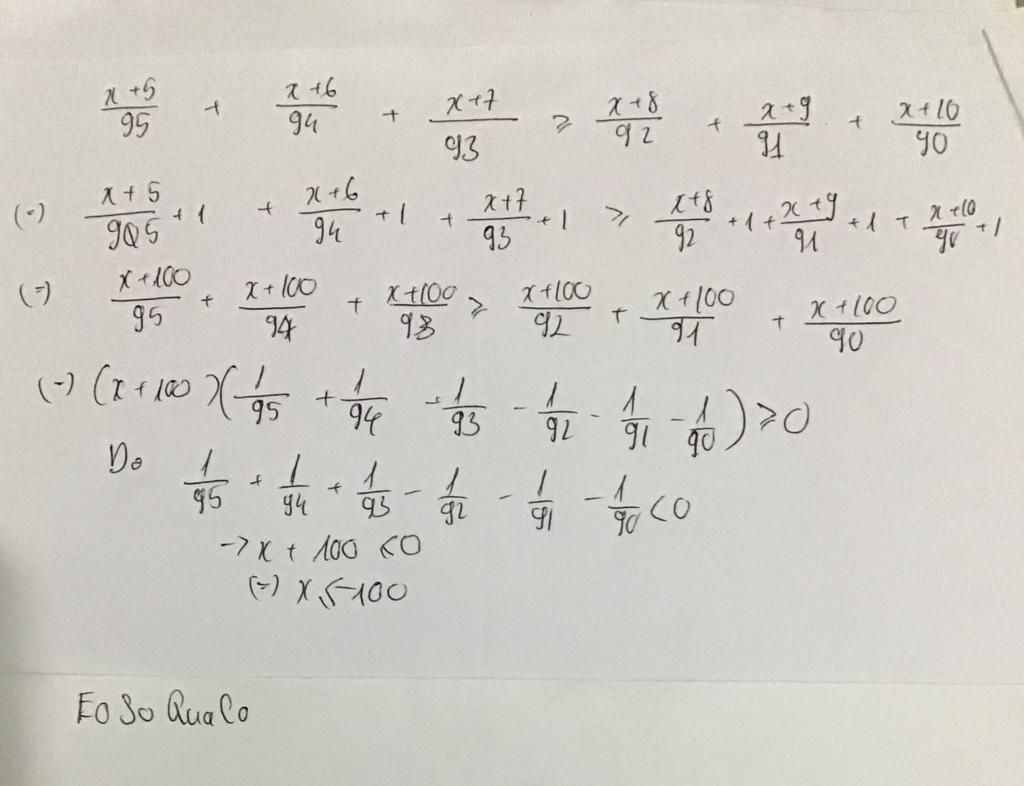 x+5/95 + x+6/94 + x+7/93 ≥ x+8/92 + x+9/91 + x+10/90
(=) x+5/905 + 1 + x+6/94 + 1 + x+7/93 + 1 ≥ x+8/92 + 1 + x+9/91 + 1 + x+10/90 + 1
(=) x+100/95 + x+100/94 + x+100/93 ≥ x+100/92 + x+100/91 + x+100/90
(=) (x+100)(1/95 + 1/94 + 1/93 - 1/92 - 1/91 - 1/90) ≥ 0
Do 1/95 + 1/94 + 1/93 - 1/92 - 1/91 - 1/90 < 0
-> x + 100 < 0
(=) x ≤ -100
EO SO QuaCo